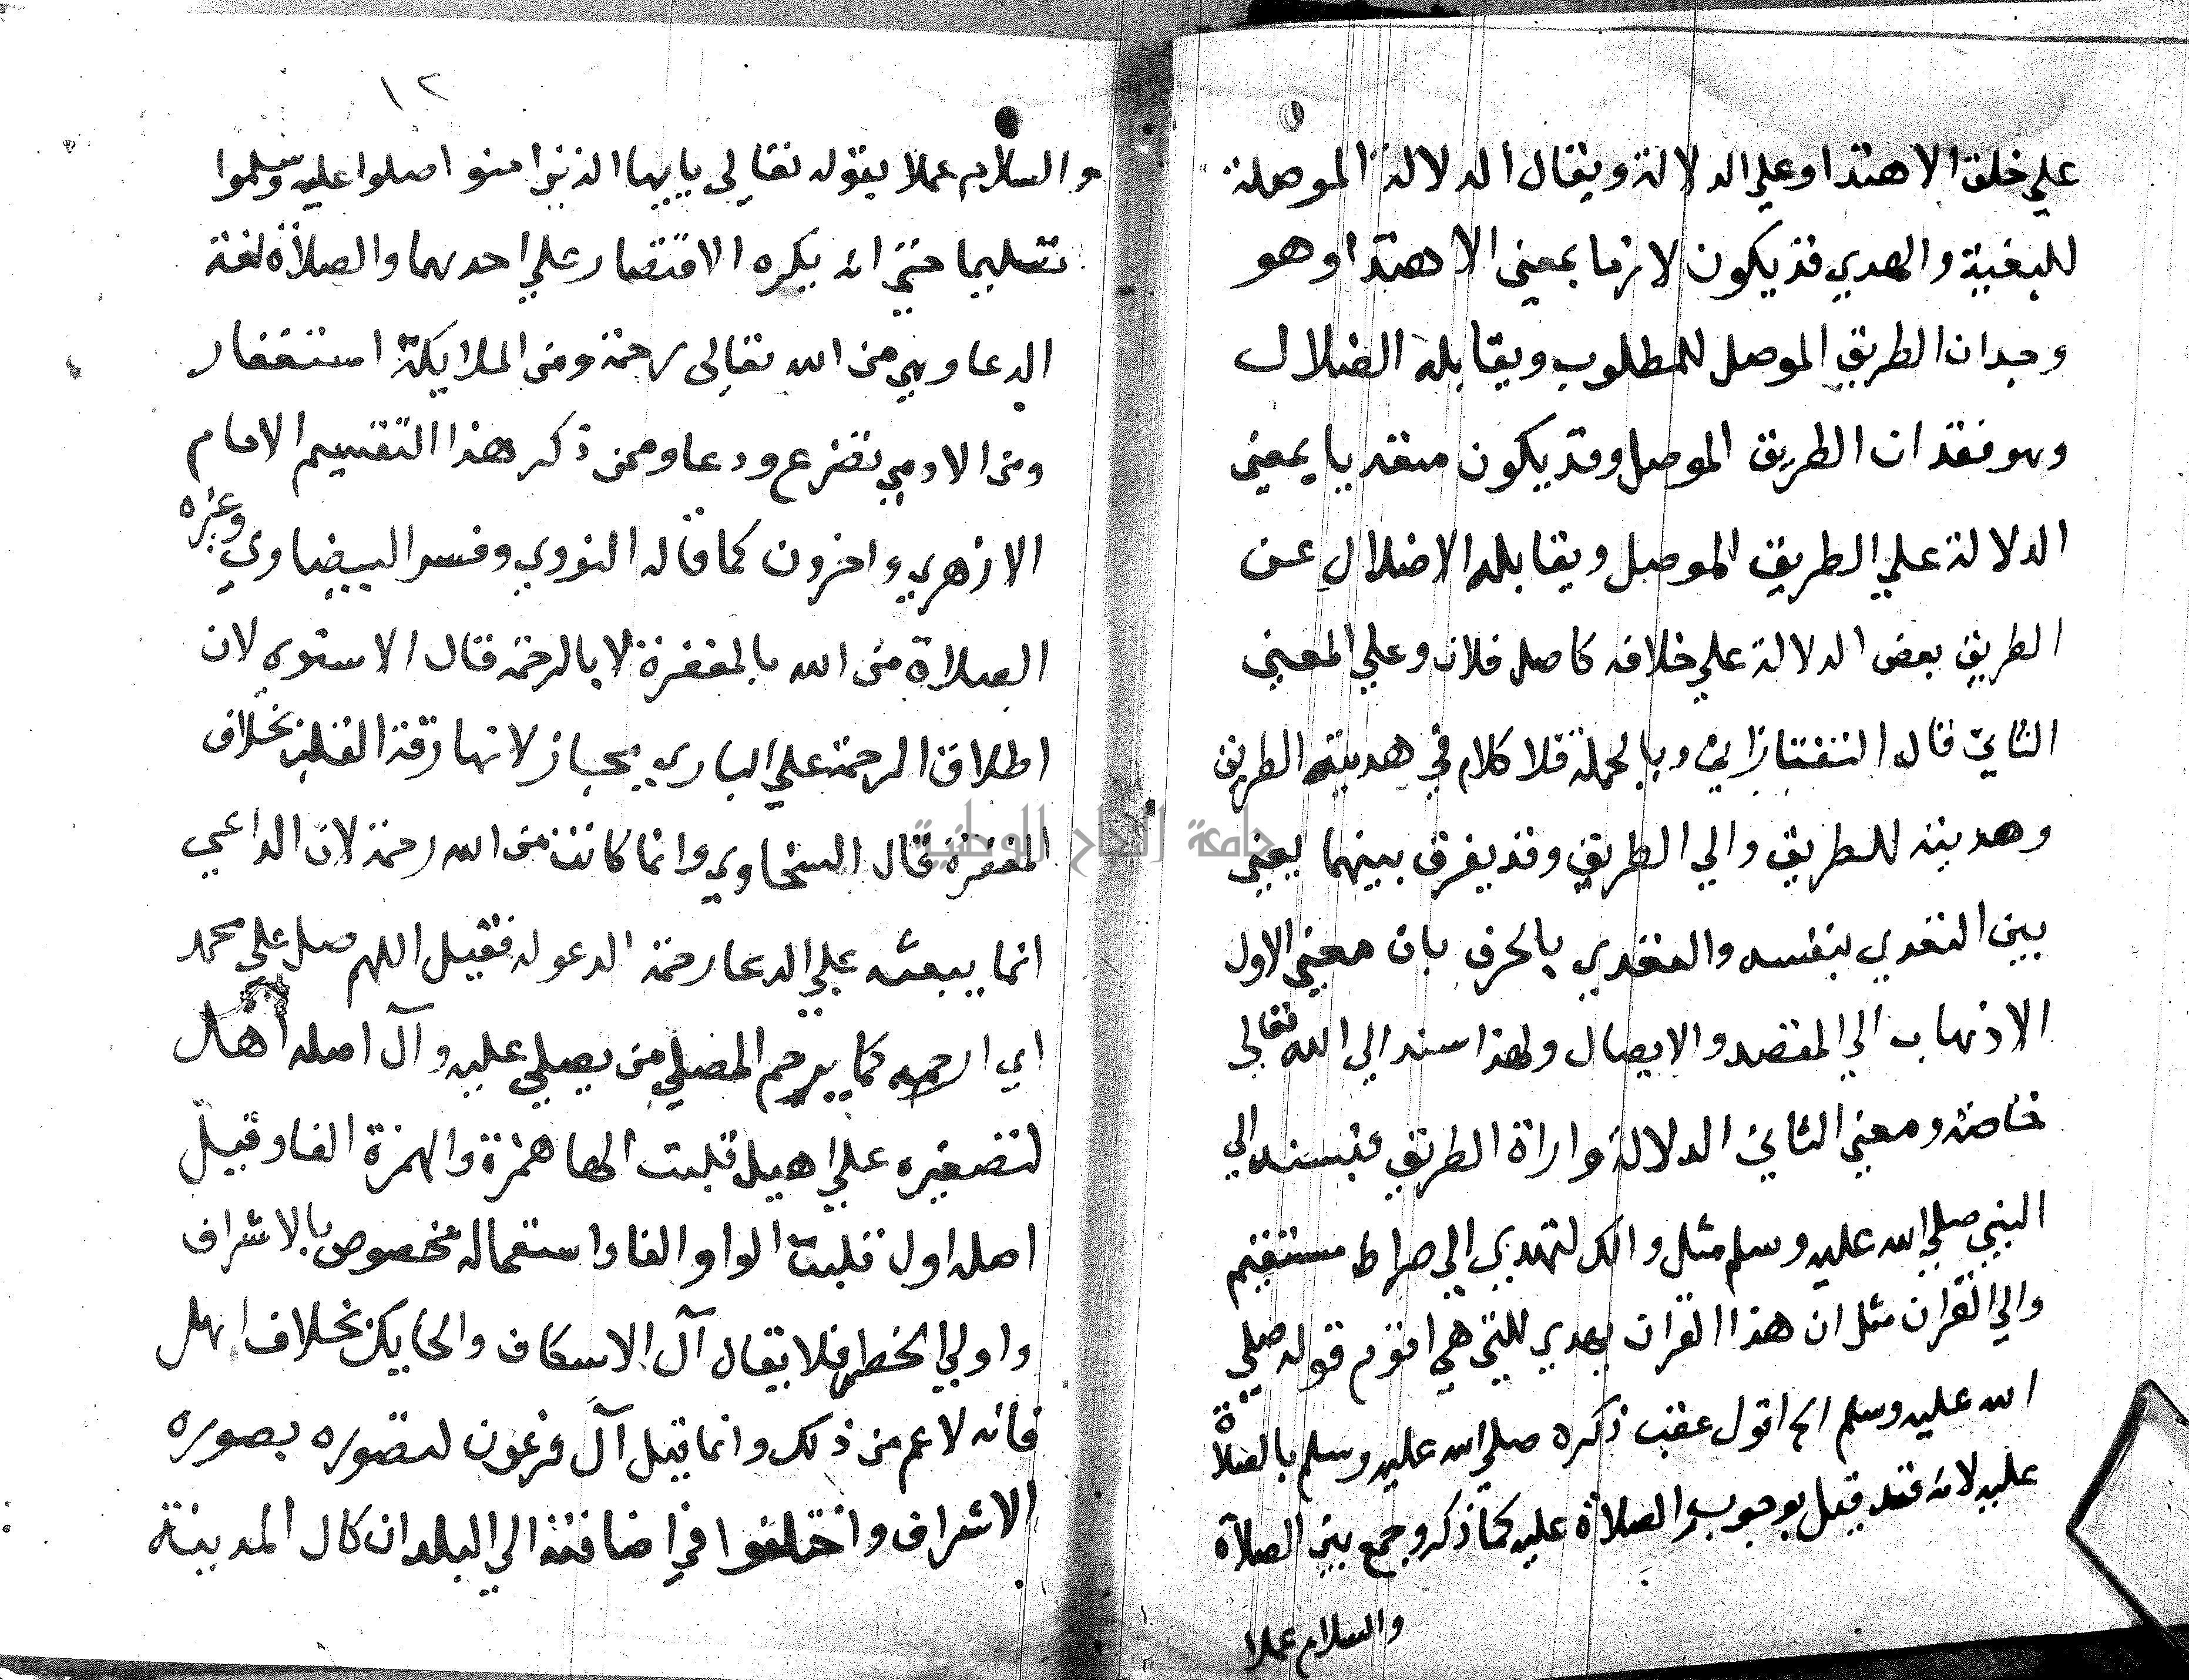 علي خلق الاهتدا وعلي الدلالة ويقال الدلالة الموصلة
للبغية والهدي قد يكون لازما بمعني الاهتدا وهو
وجدان الطريق الموصل للمطلوب ويقابله الضلال
وهو فقدان الطريق الموصل وقد يكون متعديا بمعني
الدلالة علي الطريق الموصل ويقابله الاضلال عن
الطريق بعض الدلالة علي خلافه كاضل فلان وعلي المعني
الثاني قال التفتازاني وبالجملة فلا كلام في هديته الطريق
وهديته للطريق والي الطريق وقد يفرق بينهما يعني
بين التعدي بنفسه والتعدي بالحرف بان معني الاول
الاذهاب الي المقصد والايصال ولهذا اسند الي الله تعالي
خاصة ومعني الثاني الدلالة واراة الطريق فيسند الي
النبي صلي الله عليه وسلم مثل وانك لتهدي الي صراط مستقيم
والي القران مثل ان هذا القران يهدي للتي هي اقوم قوله صلي
الله عليه وسلم الخ اقول عقب ذكره صلي الله عليه وسلم بالصلاة
عليه لانه فقد قيل بوجوب الصلاة عليه كما ذكر وجمع بين الصلاة
والسلام عملا
١٢
والسلام عملا بقوله تعالي يايها الذين امنوا صلوا عليه وسلموا
تسليما حتي انه يكره الاقتصار علي احدهما والصلاة لغة
الدعا وهي من الله تعالى رحمة ومن الملايكة استغفار
ومن الادمي تضرع ودعا وممن ذكر هذا التقسيم الامام
الازهري واخرون كما قاله النووي وفسر البيضاوي وغيره
الصلاة من الله بالمغفرة لا بالرحمة قال الاسنوي لان
اطلاق الرحمة علي الباري مجاز لانها رقة القلب بخلاف
المغفرة قال السخاوي وانما كانت من الله رحمة لان الداعي
انما يبعثه علي الدعا رحمة المدعو له فقيل اللهم صل علي محمد
اي ارحمه كما يرحم المصلي من يصلي عليه وآل اصله اهل
لتصغيره علي اهيل قلبت الها همزة والهمزة الفا وقيل
اصله اول قلبت الواو الفا واستعماله مخصوص بالاشراف
واولي الخطر فلا يقال آل الاسكاف والحايك بخلاف اهل
فانه لاعم من ذلك وانما قيل آل فرعون لتصوره بصوره
الاشراف واختلفوا في اضافته الي البلدان كال المدينة
جامعة النجاح الوطنية